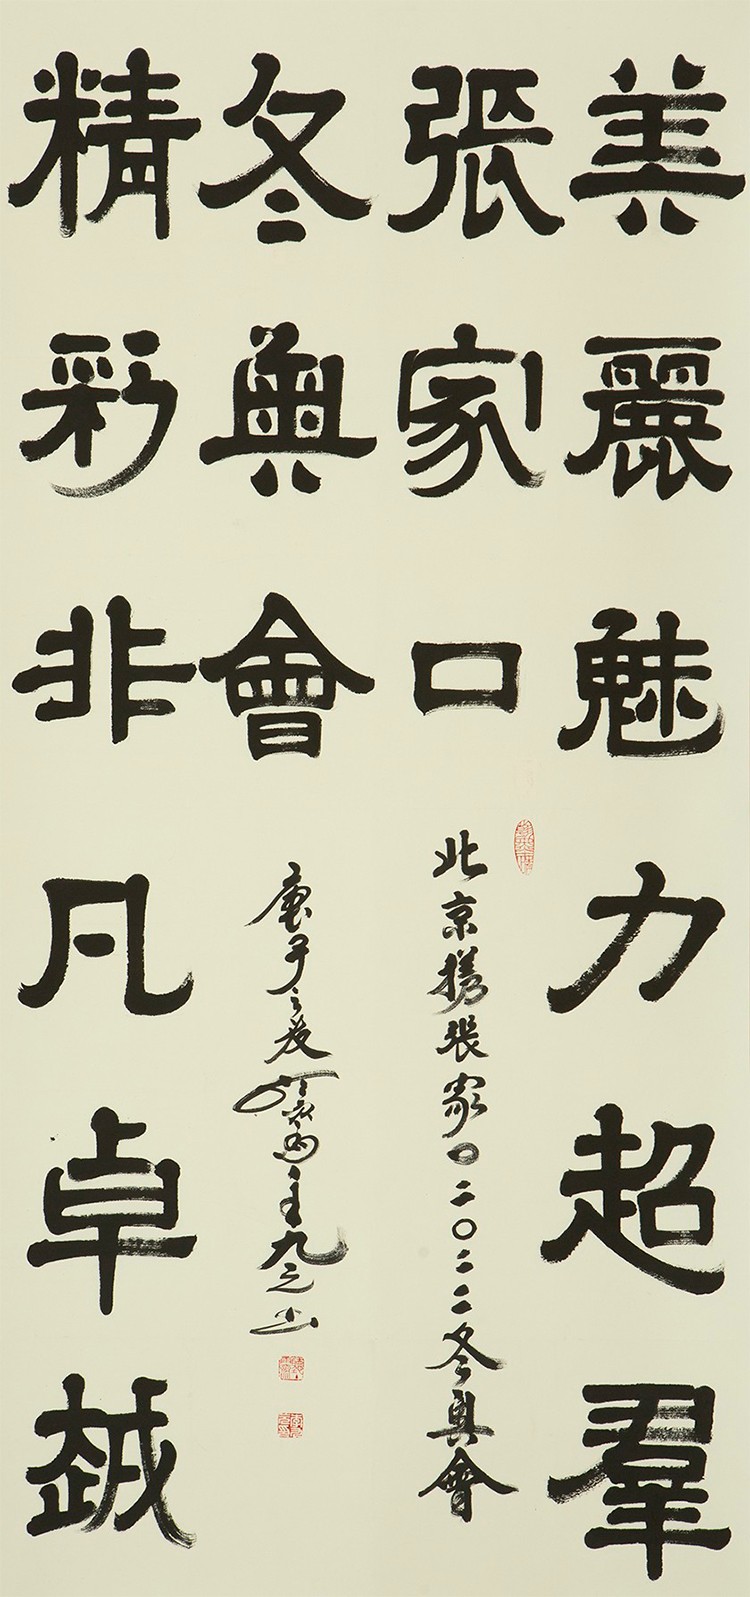 美麗魅力超羣
張家口
冬奧會
精彩非凡卓越
北京携張家口二〇二二冬奧會
庚子之主九之书